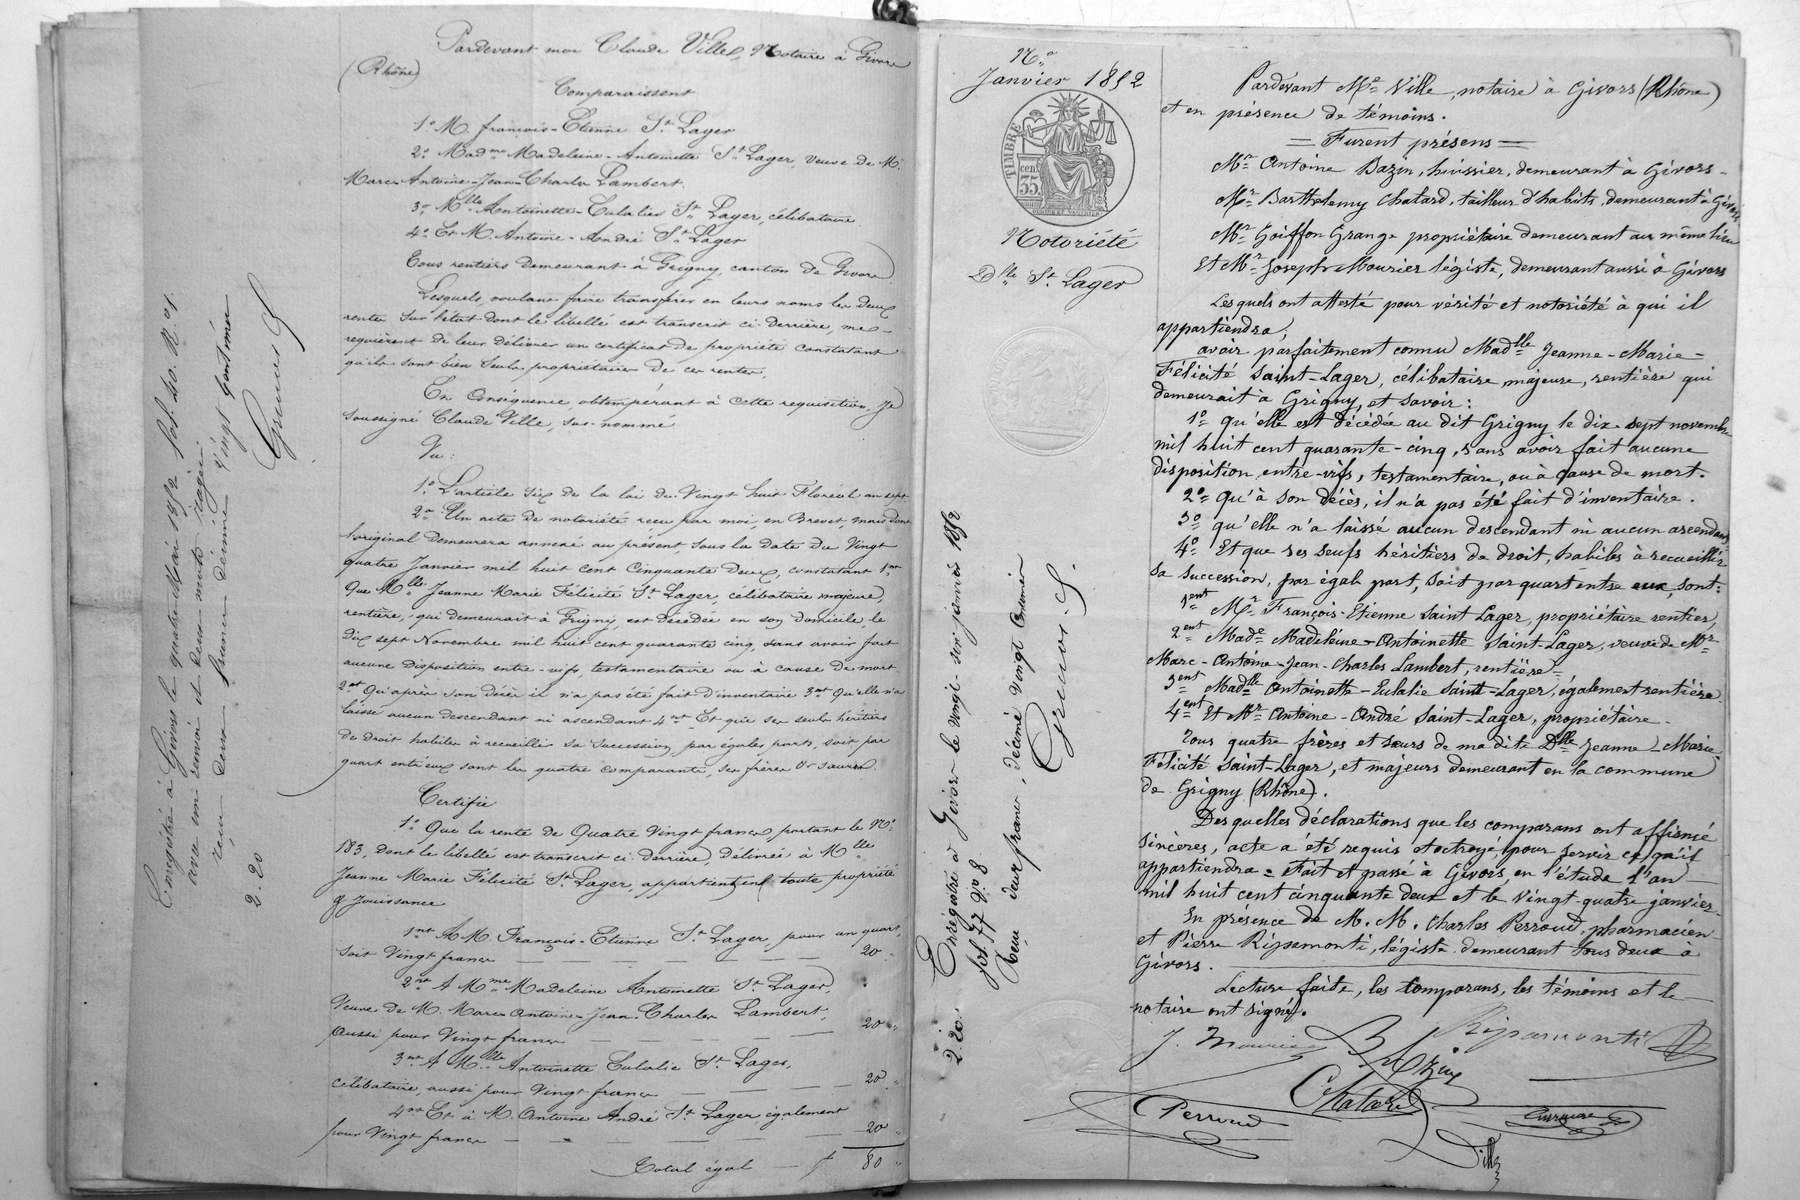 Pardevant moi Claude Ville, Notaire à Givors
(Rhône)
Comparaissent
1º M. françois-Etienne St. Lager
2º Madme Madeleine-Antoinette St. Lager, veuve de M.
Marc-Antoine-Jean-Charles Lambert.
3º Mlle Antoinette-Eulalie St. Lager, célibataire
4º Et M. Antoine-André St. Lager
Tous rentiers demeurant à Grigny, canton de Givors
Lesquels, voulant faire transférer en leurs noms les deux
rentes sur l'état dont le libellé est transcrit ci-derrière, me
requièrent de leur délivrer un certificat de propriété constatant
qu'ils sont bien seuls propriétaires de ces rentes.
En Conséquence, obtempérant à cette requisition, Je
soussigné Claude Ville, sus-nommé
Vu:
1º L'article six de la loi du Vingt huit Floréal an sept
2º Un acte de notoriété reçu par moi, en Brevet, mais dont
l'original demeurera annexé au présent, sous la date du Vingt
quatre Janvier mil huit cent Cinquante deux, constatant 1ent
Que Mlle Jeanne Marie Félicité St. Lager, célibataire majeure,
rentière, qui demeurait à Grigny, est décédée en son domicile, le
dix sept Novembre mil huit cent quarante cinq, sans avoir fait
aucune disposition entre-vifs, testamentaire ou à cause de mort
2ent Qu'après son décès il n'a pas été fait d'inventaire 3ent Qu'elle n'a
laissé aucun descendant ni ascendant 4ent Et que ses seuls héritiers
de droit habiles à recueillir sa succession, par égales parts, soit par
quart entr'eux sont les quatre comparants, ses frères & sœurs.
Certifie
1º Que la rente de Quatre Vingt francs, portant le Nº
183, dont le libellé est transcrit ci-derrière, délivrée à Mlle
Jeanne Marie Félicité St. Lager, appartient en toute propriété
& Jouissance
1ent A M. François-Etienne St. Lager, pour un quart,
soit Vingt francs — 20 "
2ent A Mme Madeleine Antoinette St. Lager,
Veuve de M. Marc Antoine-Jean-Charles Lambert,
aussi pour Vingt francs — 20 "
3ent A Mlle Antoinette Eulalie St. Lager,
célibataire, aussi pour Vingt francs — 20 "
4ent Et à M. Antoine André St. Lager également
pour Vingt francs — 20 "
Total égal — f 80 "
Enregistré à Givors le quatre Mai 1852 fol. 40. R. 9.
reçu deux francs décime Vingt Centimes
2.20
Nº
Janvier 1852
TIMBRE
35 cen
Notoriété
Dlle St. Lager
Enregistré à Givors le vingt-six janvier 1852
fol 77 Vº 8
Reçu deux francs, décime vingt centimes
2.20.
Pardevant Me Ville, notaire à Givors (Rhône)
et en présence de témoins.
= Furent présens =
Mr Antoine Bazin, huissier, demeurant à Givors -
Mr Barthelemy Chatard, tailleur d'habits, demeurant à Givors
Mr Goiffon Grange propriétaire demeurant au même lieu
Et Mr Joseph Mourier légiste, demeurant aussi à Givors
Lesquels ont attesté pour vérité et notoriété à qui il
appartiendra,
avoir parfaitement connu Madlle Jeanne-Marie-
Félicité Saint-Lager, célibataire majeure, rentière qui
demeurait à Grigny, et savoir:
1º qu'elle est décédée au dit Grigny le dix-sept novembre
mil huit cent quarante-cinq, sans avoir fait aucune
disposition entre-vifs, testamentaire, ou à cause de mort.
2º qu'à son décès, il n'a pas été fait d'inventaire.
3º qu'elle n'a laissé aucun descendant ni aucun ascendant
4º Et que ses seuls héritiers de droit, habiles à recueillir
sa succession, par égale part, soit par quart entre eux, sont:
1ent Mr François-Etienne Saint Lager, propriétaire rentier,
2ent Made Madeleine-Antoinette Saint-Lager, veuve de Mr
Marc-Antoine-Jean-Charles Lambert, rentière
3ent Madlle Antoinette-Eulalie Saint-Lager, également rentière
4ent Et Mr Antoine-André Saint-Lager, propriétaire.
Tous quatre frères et sœurs de ma dite Dlle Jeanne-Marie
Félicité Saint-Lager, et majeurs demeurant en la commune
de Grigny (Rhône).
Desquelles déclarations que les comparans ont affirmé
sincères, acte a été requis et octroyé, pour servir ce qu'il
appartiendra = Fait et passé à Givors en l'étude l'an
mil huit cent cinquante deux et le vingt-quatre janvier.
En présence de M. M. Charles Perroud, pharmacien
et Pierre Ripamonti, légiste demeurant tous deux à
Givors.
Lecture faite, les comparans, les témoins et le
notaire ont signé.
J. Mourier Bazin Ripamonti
Chatard
Perroud
Ville